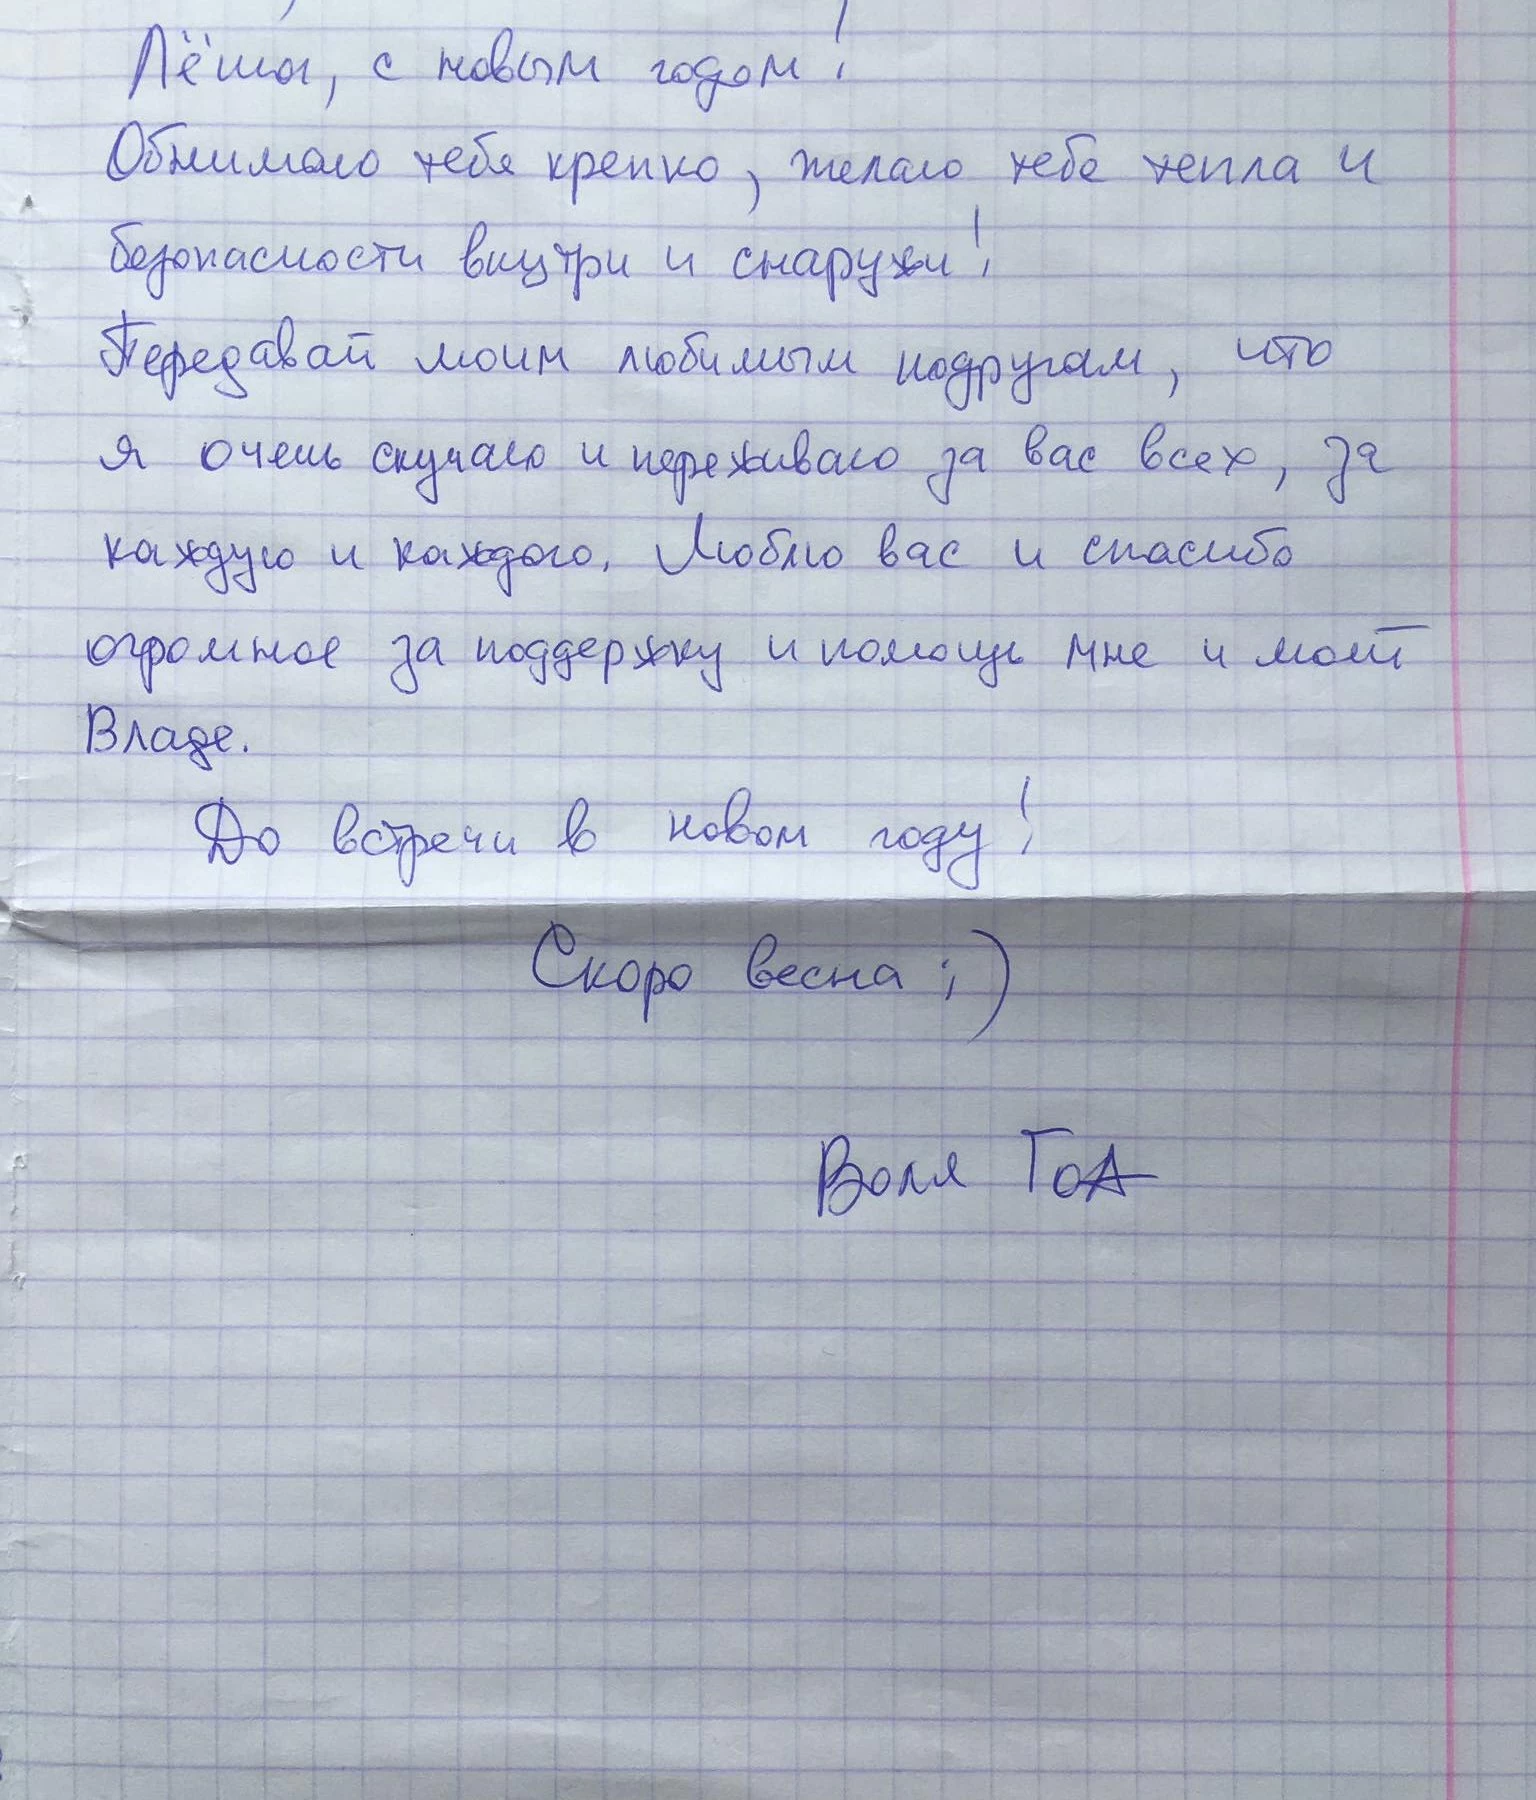 Лёша, с новым годом!
Обнимаю тебя крепко, желаю тебе тепла и
безопасности внутри и снаружи!
Передавай моим любимым подругам, что
я очень скучаю и переживаю за вас всех, за
каждую и каждого. Люблю вас и спасибо
огромное за поддержку и помощь мне и моей
Владе.
До встречи в новом году!
Скоро весна ;)
Воля ГоА